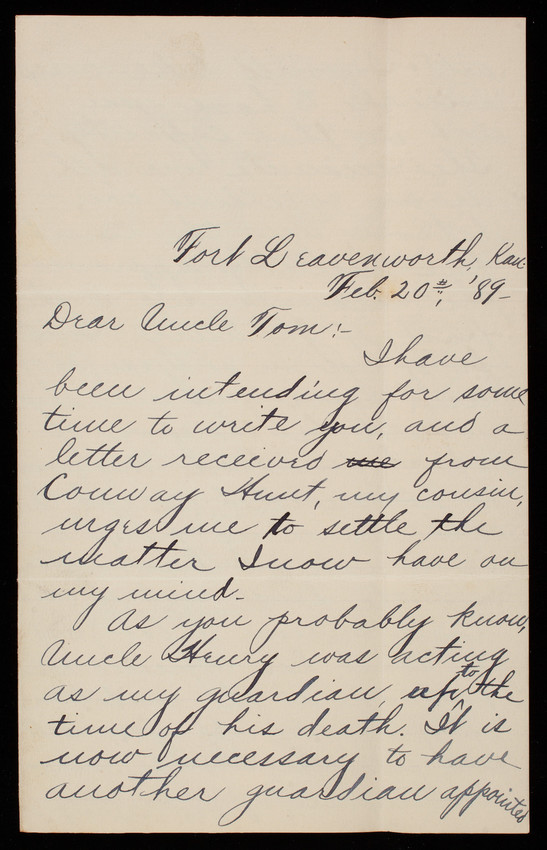 Fort Leavenworth, Kan.
Feb. 20th, '89-
Dear Uncle Tom:-
I have
been intending for some
time to write you, and a
letter received me from
Conway Hunt, my cousin,
urges me to settle the
matter I now have on
my mind.
As you probably know,
Uncle Henry was acting
as my guardian, up to the
time of his death. It is
now necessary to have
another guardian appointed